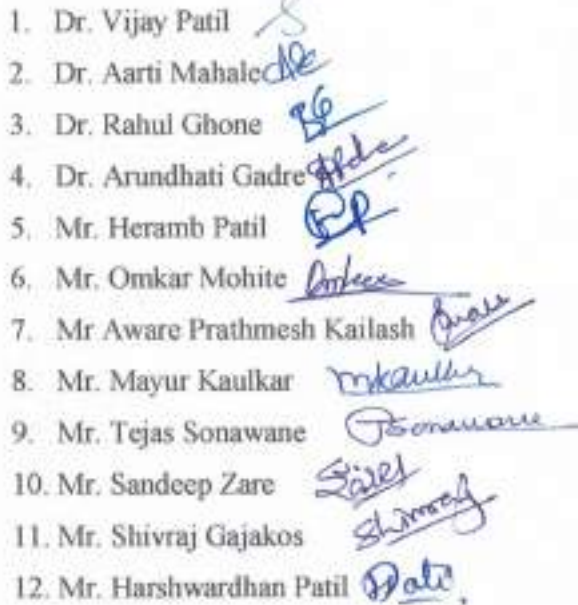 1. Dr. Vijay Patil
2. Dr. Aarti Mahale
3. Dr. Rahul Ghone
4. Dr. Arundhati Gadre
5. Mr. Heramb Patil
6. Mr. Omkar Mohite Omkar
7. Mr Aware Prathmesh Kailash
8. Mr. Mayur Kaulkar mkaulkar
9. Mr. Tejas Sonawane TSonawane
10. Mr. Sandeep Zare
11. Mr. Shivraj Gajakos Shivraj
12. Mr. Harshwardhan Patil